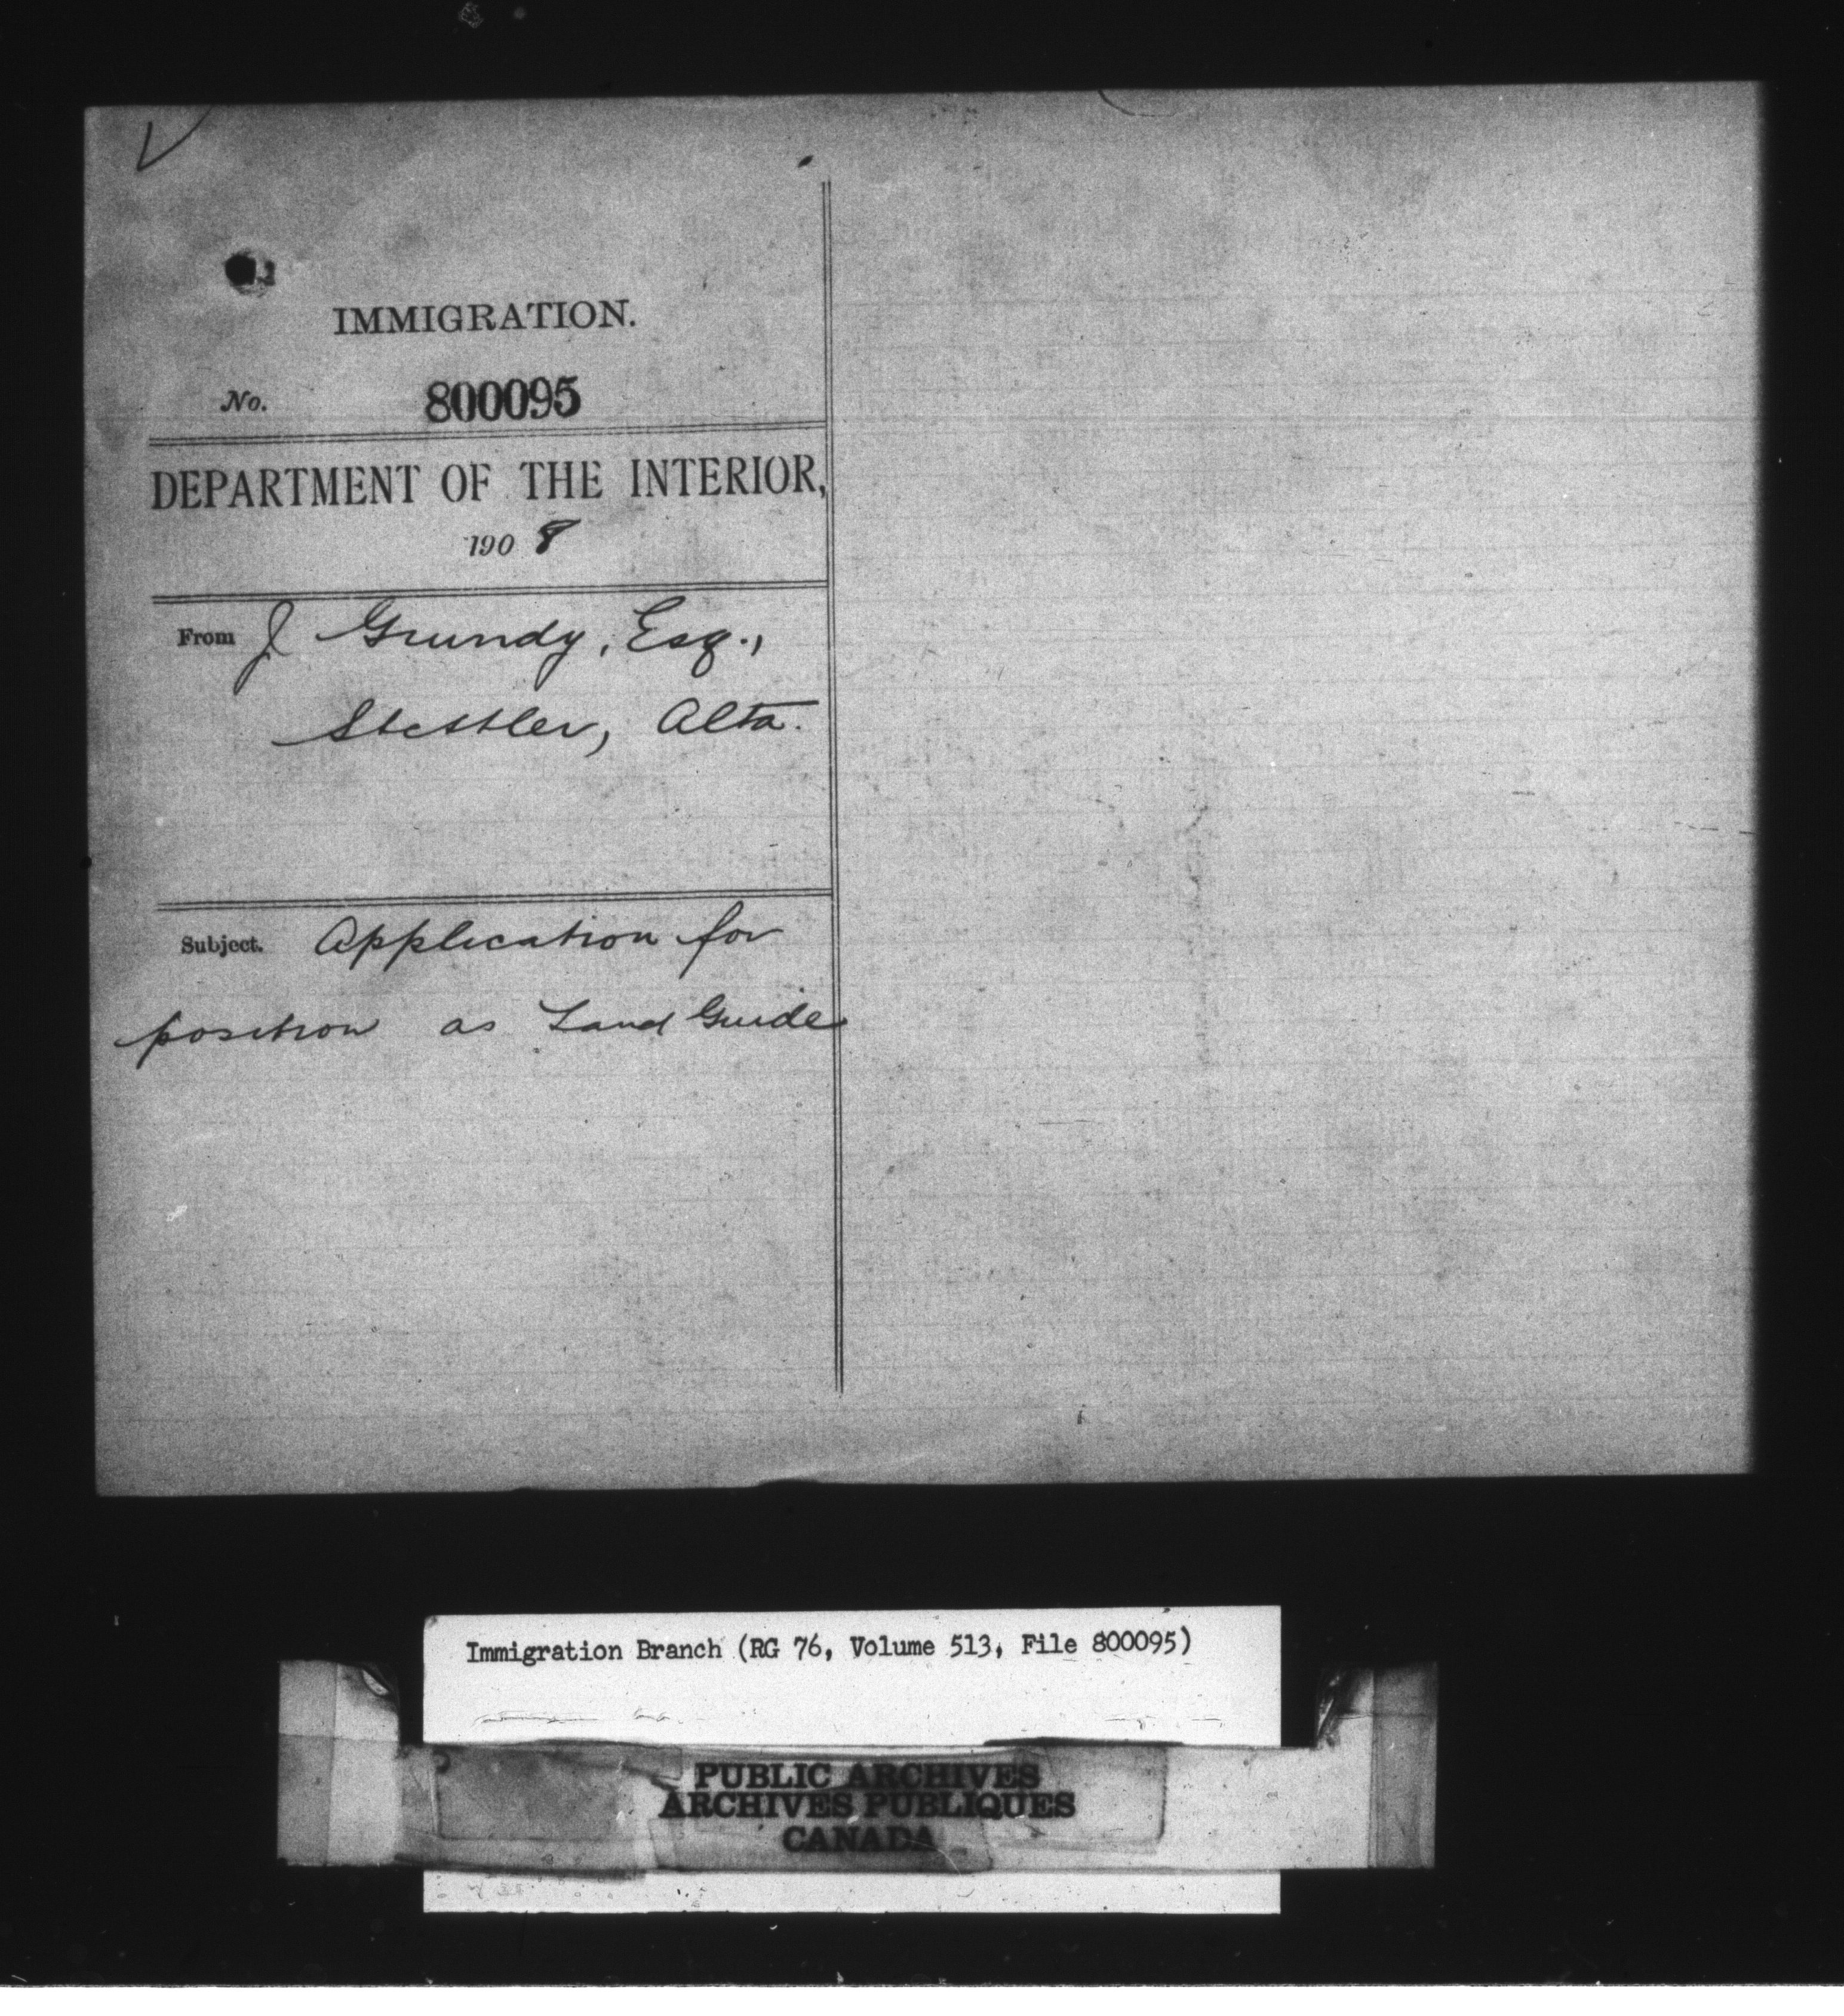 IMMIGRATION.
No. 800095
DEPARTMENT OF THE INTERIOR,
1908
From J Grundy, Esq.,
Stettler, Alta.
Subject. Application for
position as Land Guide
Immigration Branch (RG 76, Volume 513, File 800095)
PUBLIC ARCHIVES
ARCHIVES PUBLIQUES
CANADA